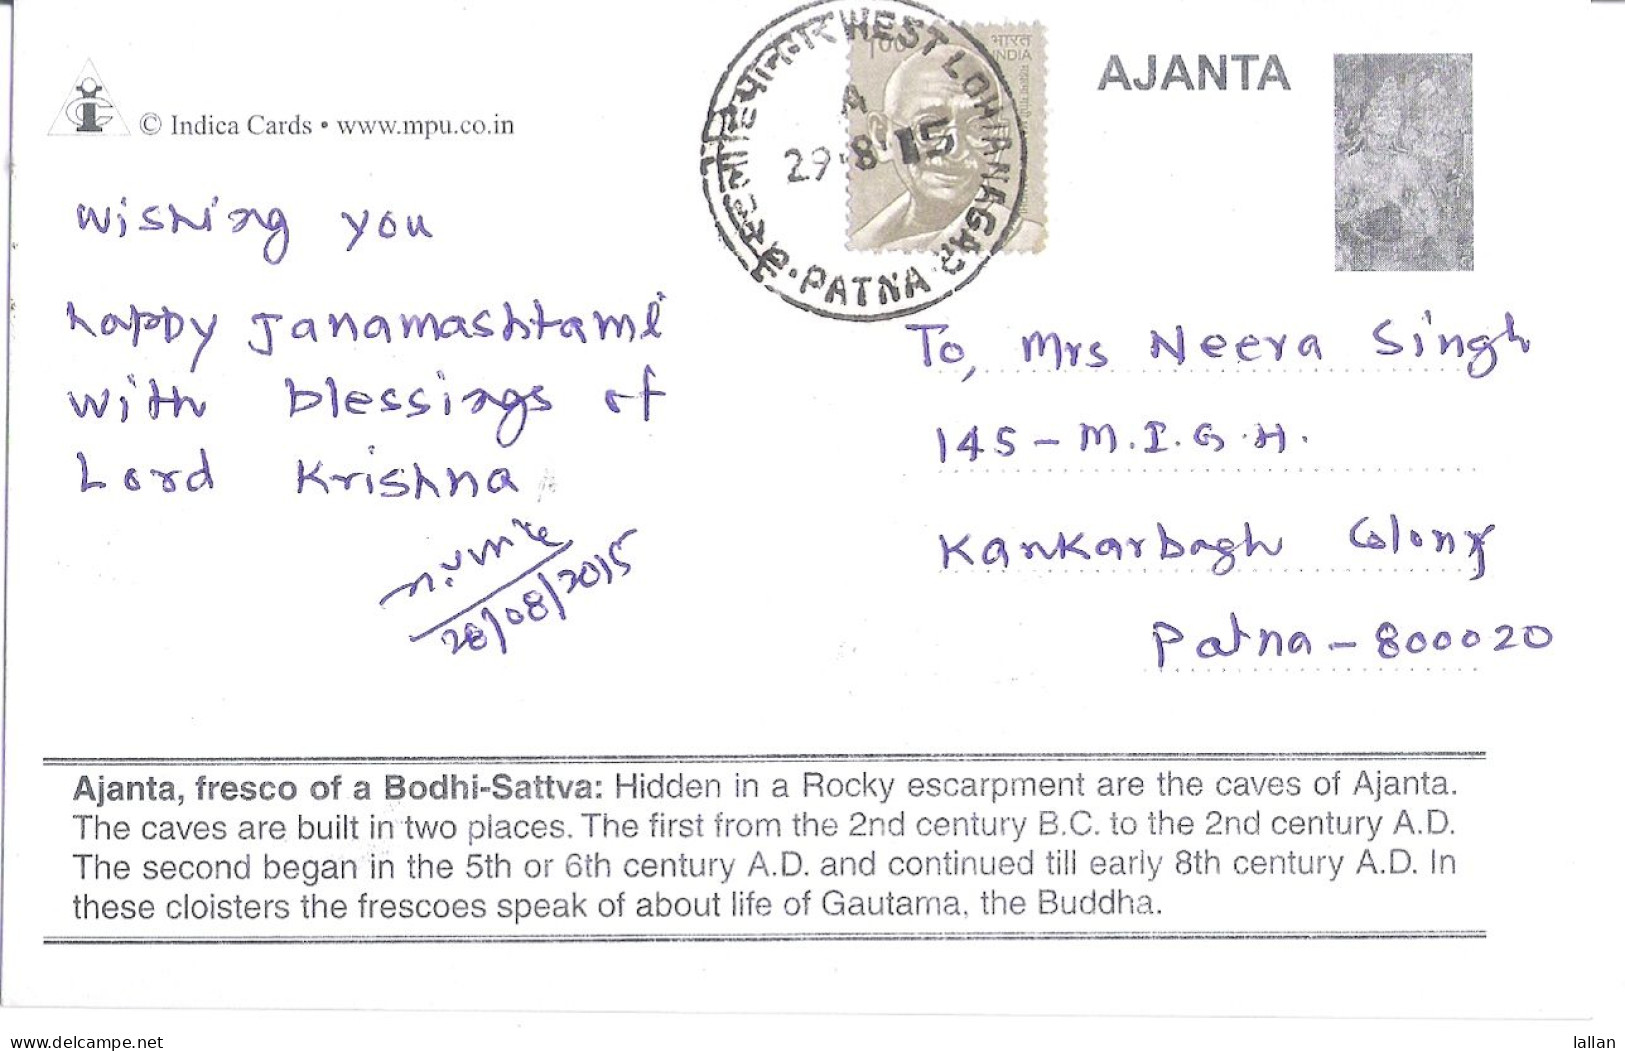 © Indica Cards • www.mpu.co.in
AJANTA
1.00
भारत
INDIA
WEST LOHIANAGAR
PATNA
A
29 8 15
wishing you
happy Janamashtami
with blessings of
Lord Krishna
28/08/2015
To, Mrs Neera Singh
145 - M.I.G.H.
Kankarbagh Colony
Patna - 800020
Ajanta, fresco of a Bodhi-Sattva: Hidden in a Rocky escarpment are the caves of Ajanta.
The caves are built in two places. The first from the 2nd century B.C. to the 2nd century A.D.
The second began in the 5th or 6th century A.D. and continued till early 8th century A.D. In
these cloisters the frescoes speak of about life of Gautama, the Buddha.
www.delcampe.net
lallan